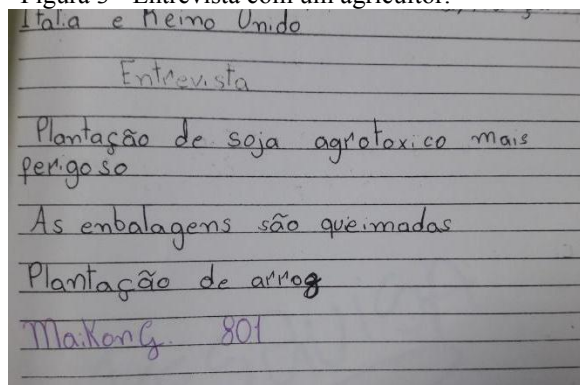 Figura 3 – Entrevista com um agricultor.
Italia e Reino Unido
Entrevista
Plantação de soja agrotoxico mais
perigoso
As embalagens são queimadas
Plantação de arroz
Maikon G. 801